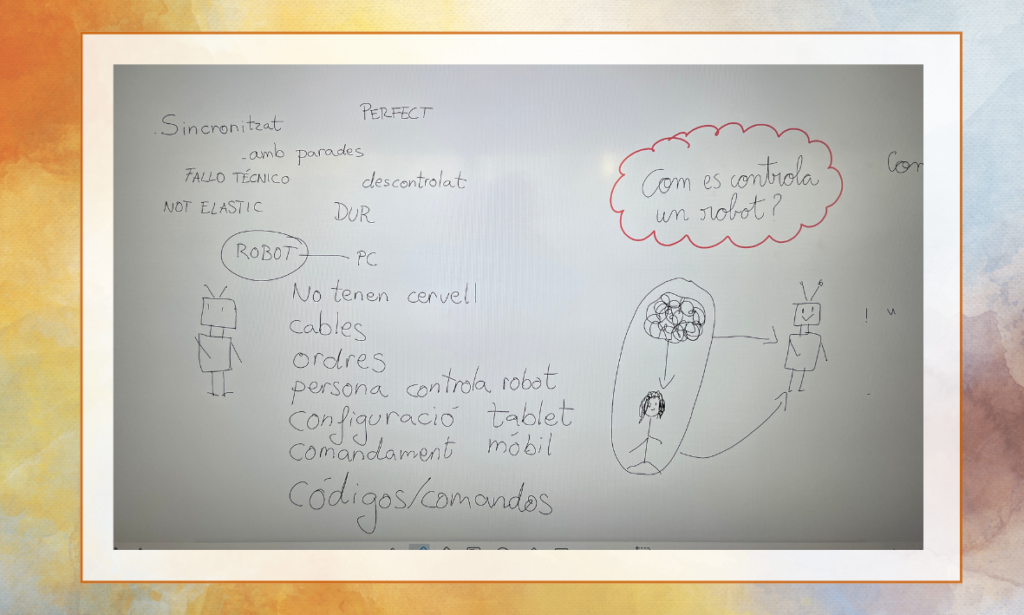 . Sincronitzat
PERFECT
- amb parades
FALLO TÉCNICO
descontrolat
NOT ELASTIC
DUR
ROBOT
PC
No tenen cervell
cables
ordres
persona controla robot
configuració tablet
comandament móbil
Códigos/comandos
Com es controla
un robot?